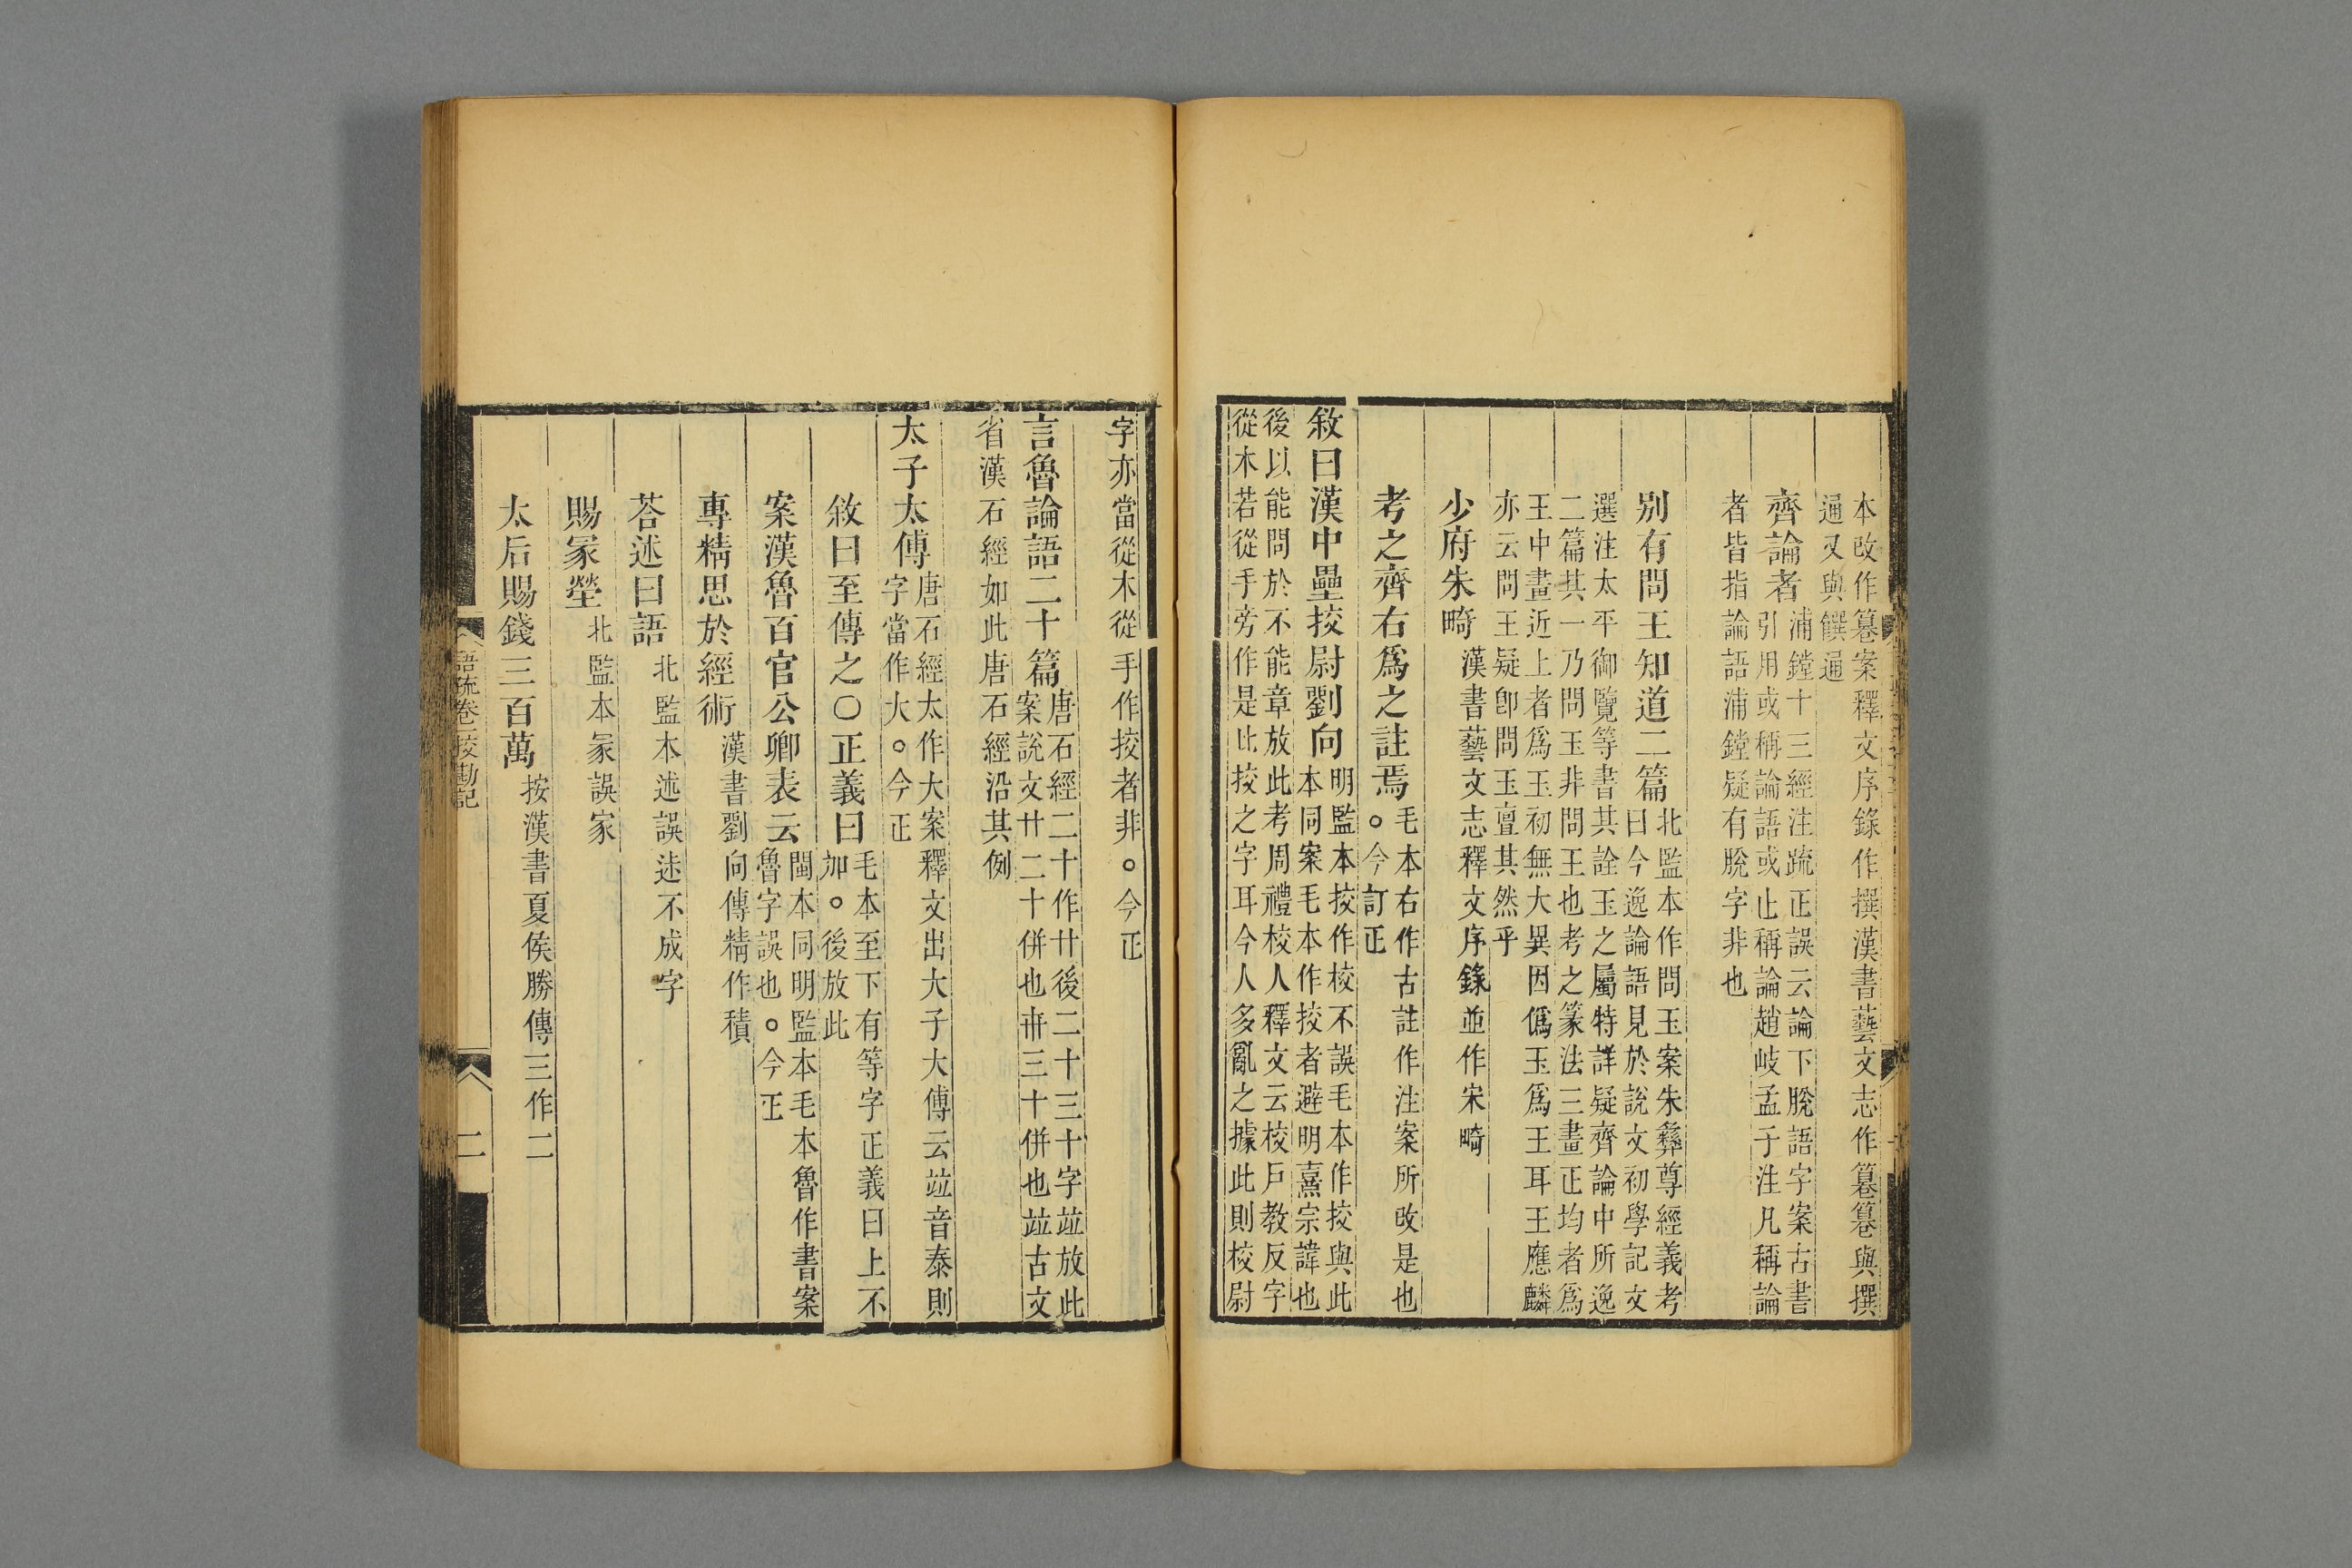 本改作簒案釋文序錄作撰漢書藝文志作簒簒與撰
通又與饌通
齊論者
浦鏜十三經注疏正誤云論下脫語字案古書
引用或稱論語或止稱論趙岐孟子注凡稱論
者皆指論語浦鏜疑有脫字非也
别有問王知道二篇
北監本作問玉案朱彝尊經義考
曰今逸論語見於說文初學記文
選注太平御覽等書其詮玉之屬特詳疑齊論中所逸
二篇其一乃問玉非問王也考之篆法三畫正均者爲
王中畫近上者爲玉初無大異因僞玉爲王耳王應麟
亦云問王疑卽問玉亶其然乎
少府朱畸
漢書藝文志釋文序錄並作宋畸
考之齊右爲之註焉
毛本右作古註作注案所改是也
○今訂正
敘曰漢中壘挍尉劉向
明監本挍作校不誤毛本作挍與此
本同案毛本作挍者避明熹宗諱也
後以能問於不能章放此考周禮校人釋文云校戶教反字
從木若從手旁作是比挍之字耳今人多亂之據此則校尉
字亦當從木從手作挍者非○今正
言魯論語二十篇
唐石經二十作廿後二十三十字竝放此
案說文廿二十併也卅三十併也竝古文
省漢石經如此唐石經沿其例
太子太傅
唐石經太作大案釋文出大子大傅云竝音泰則
字當作大○今正
敘曰至傳之○正義曰
毛本至下有等字正義曰上不
加○後放此
案漢魯百官公卿表云
閩本同明監本毛本魯作書案
魯字誤也○今正
專精思於經術
漢書劉向傳精作積
荅述曰語
北監本述誤逑不成字
賜冡塋
北監本冡誤家
太后賜錢三百萬
按漢書夏侯勝傳三作二
語疏卷一挍勘記
二